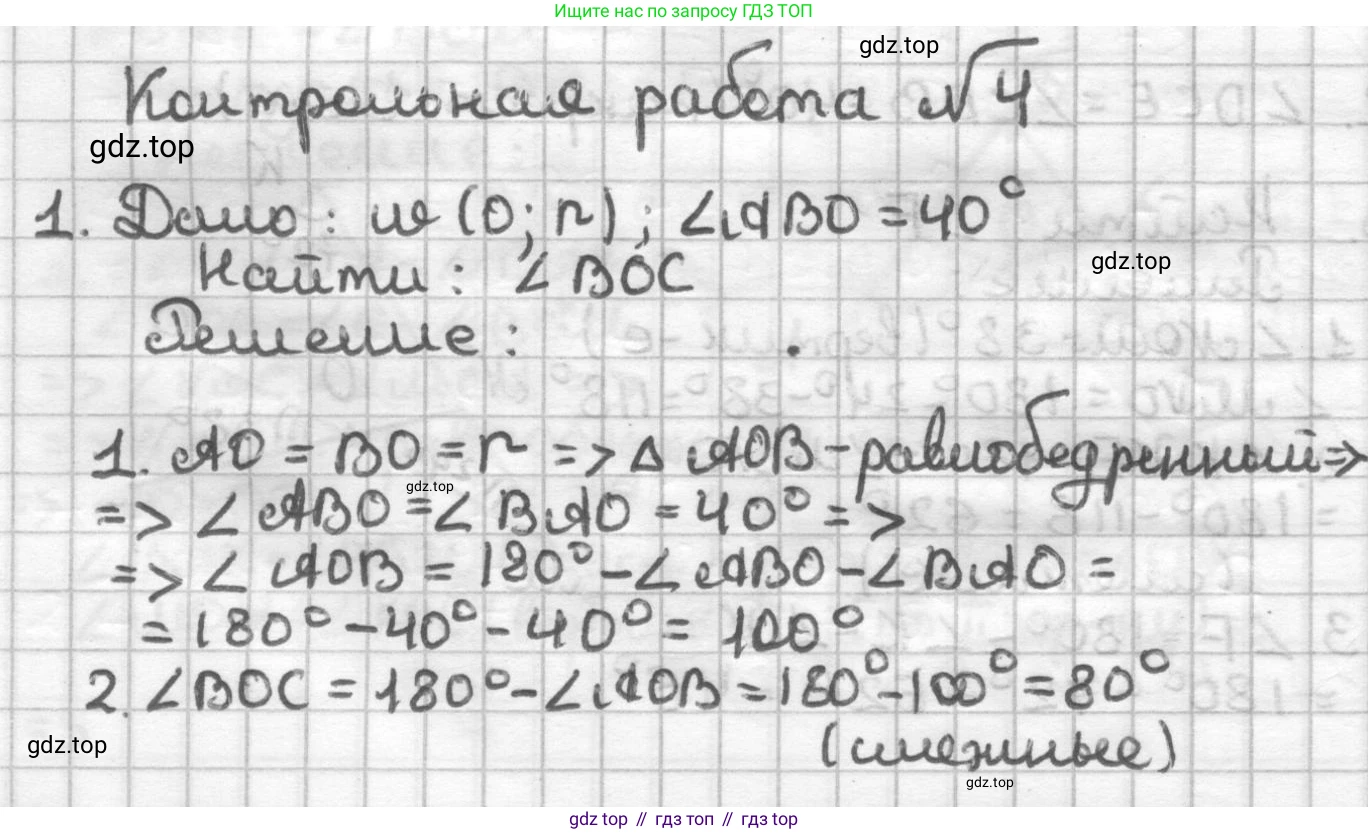 Ищите нас по запросу ГДЗ ТОП
gdz.top
Контрольная работа №4
gdz.top
1. Дано: w (O; r); ∠ABO = 40°
Найти: ∠BOC
gdz.top
Решение:
1. AO = BO = r => Δ AOB - равнобедренный =>
gdz.top
=> ∠ABO = ∠BAO = 40° =>
=> ∠AOB = 180° - ∠ABO - ∠BAO =
= 180° - 40° - 40° = 100°
2. ∠BOC = 180° - ∠AOB = 180° - 100° = 80°
gdz.top
(смежные)
gdz.top
gdz top // гдз топ // гдз top